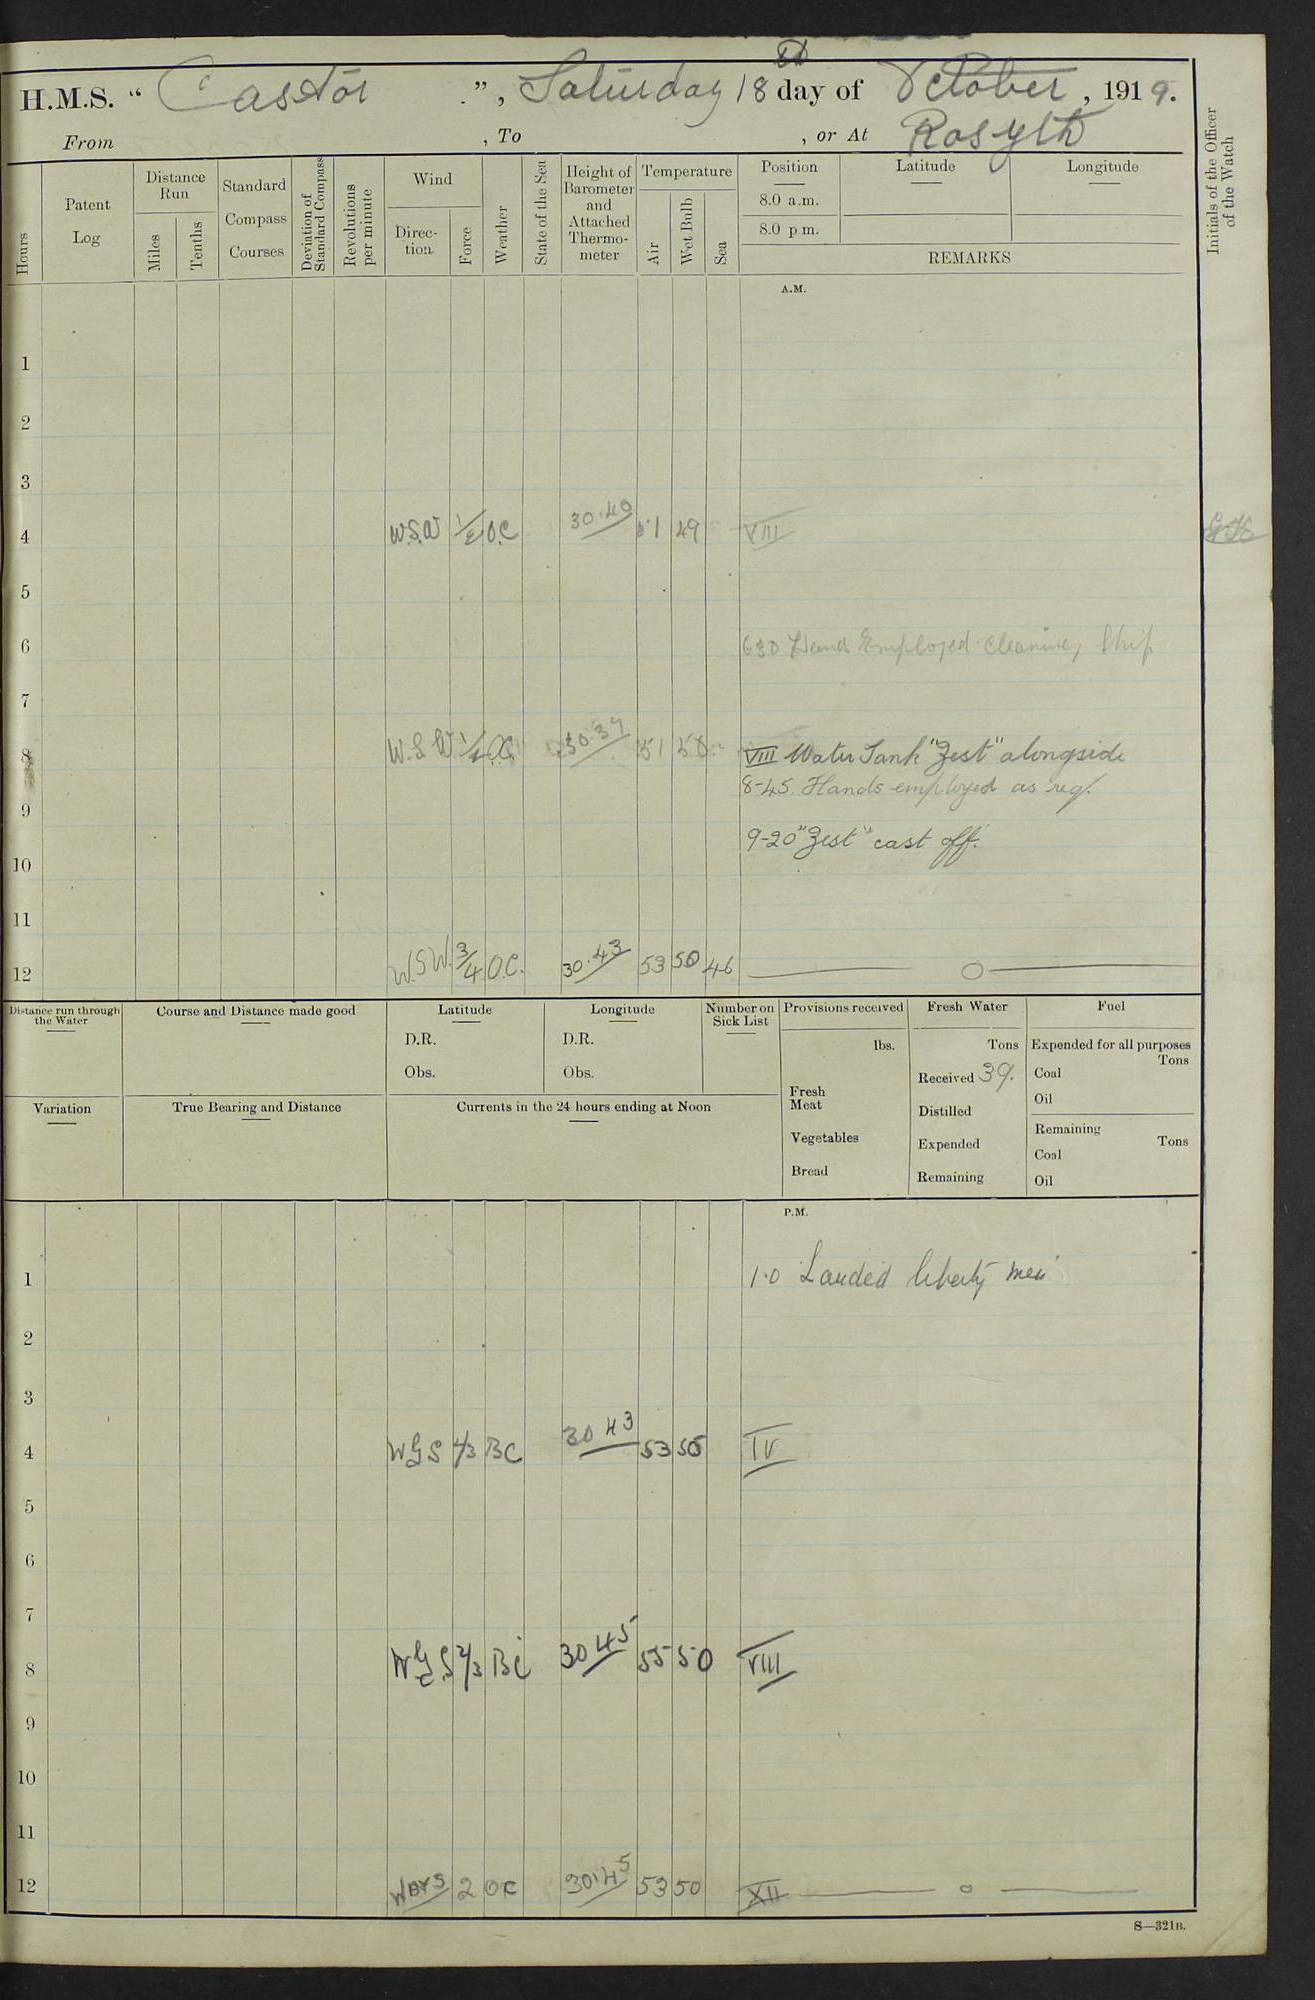 H.M.S. " Castor ", Saturday 18th day of October, 1919.
From , To , or At Rosyth
Hours
Patent Log
Distance Run
Miles
Tenths
Standard Compass Courses
Deviation of Standard Compass
Revolutions per minute
Wind
Direction
Force
Weather
State of the Sea
Height of Barometer and Attached Thermometer
Temperature
Air
Wet Bulb
Sea
Position
8.0 a.m.
8.0 p.m.
Latitude
Longitude
REMARKS
Initials of the Officer of the Watch
A.M.
1
2
3
4 W.S.W 1/2 O.C 30.40 51 49 VIII
5
6 630 Hands Employed cleaning Ship
7
8 W.S.W 1/2 O.C. 30.39 51 50 VIII Water Tank "Zest" alongside
8-45. Hands employed as req.
9
9-20 "Zest" cast off.
10
11
12 W.S.W. 3/4 O.C. 30.43 53 50 46
Distance run through the Water
Course and Distance made good
Latitude
D.R.
Obs.
Longitude
D.R.
Obs.
Number on Sick List
Provisions received
lbs.
Fresh Meat
Vegetables
Bread
Fresh Water
Tons
Received 39.
Distilled
Expended
Remaining
Fuel
Expended for all purposes
Tons
Coal
Oil
Remaining
Tons
Coal
Oil
Variation
True Bearing and Distance
Currents in the 24 hours ending at Noon
P.M.
1 1.0 Landed liberty men
2
3
4 W B S 2/3 BC 30 43 53 50 IV
5
6
7
8 W B S 2/3 BC 30 45 55 50 VIII
9
10
11
12 W BY S 2 OC 30.45 53 50 XII
S—321B.